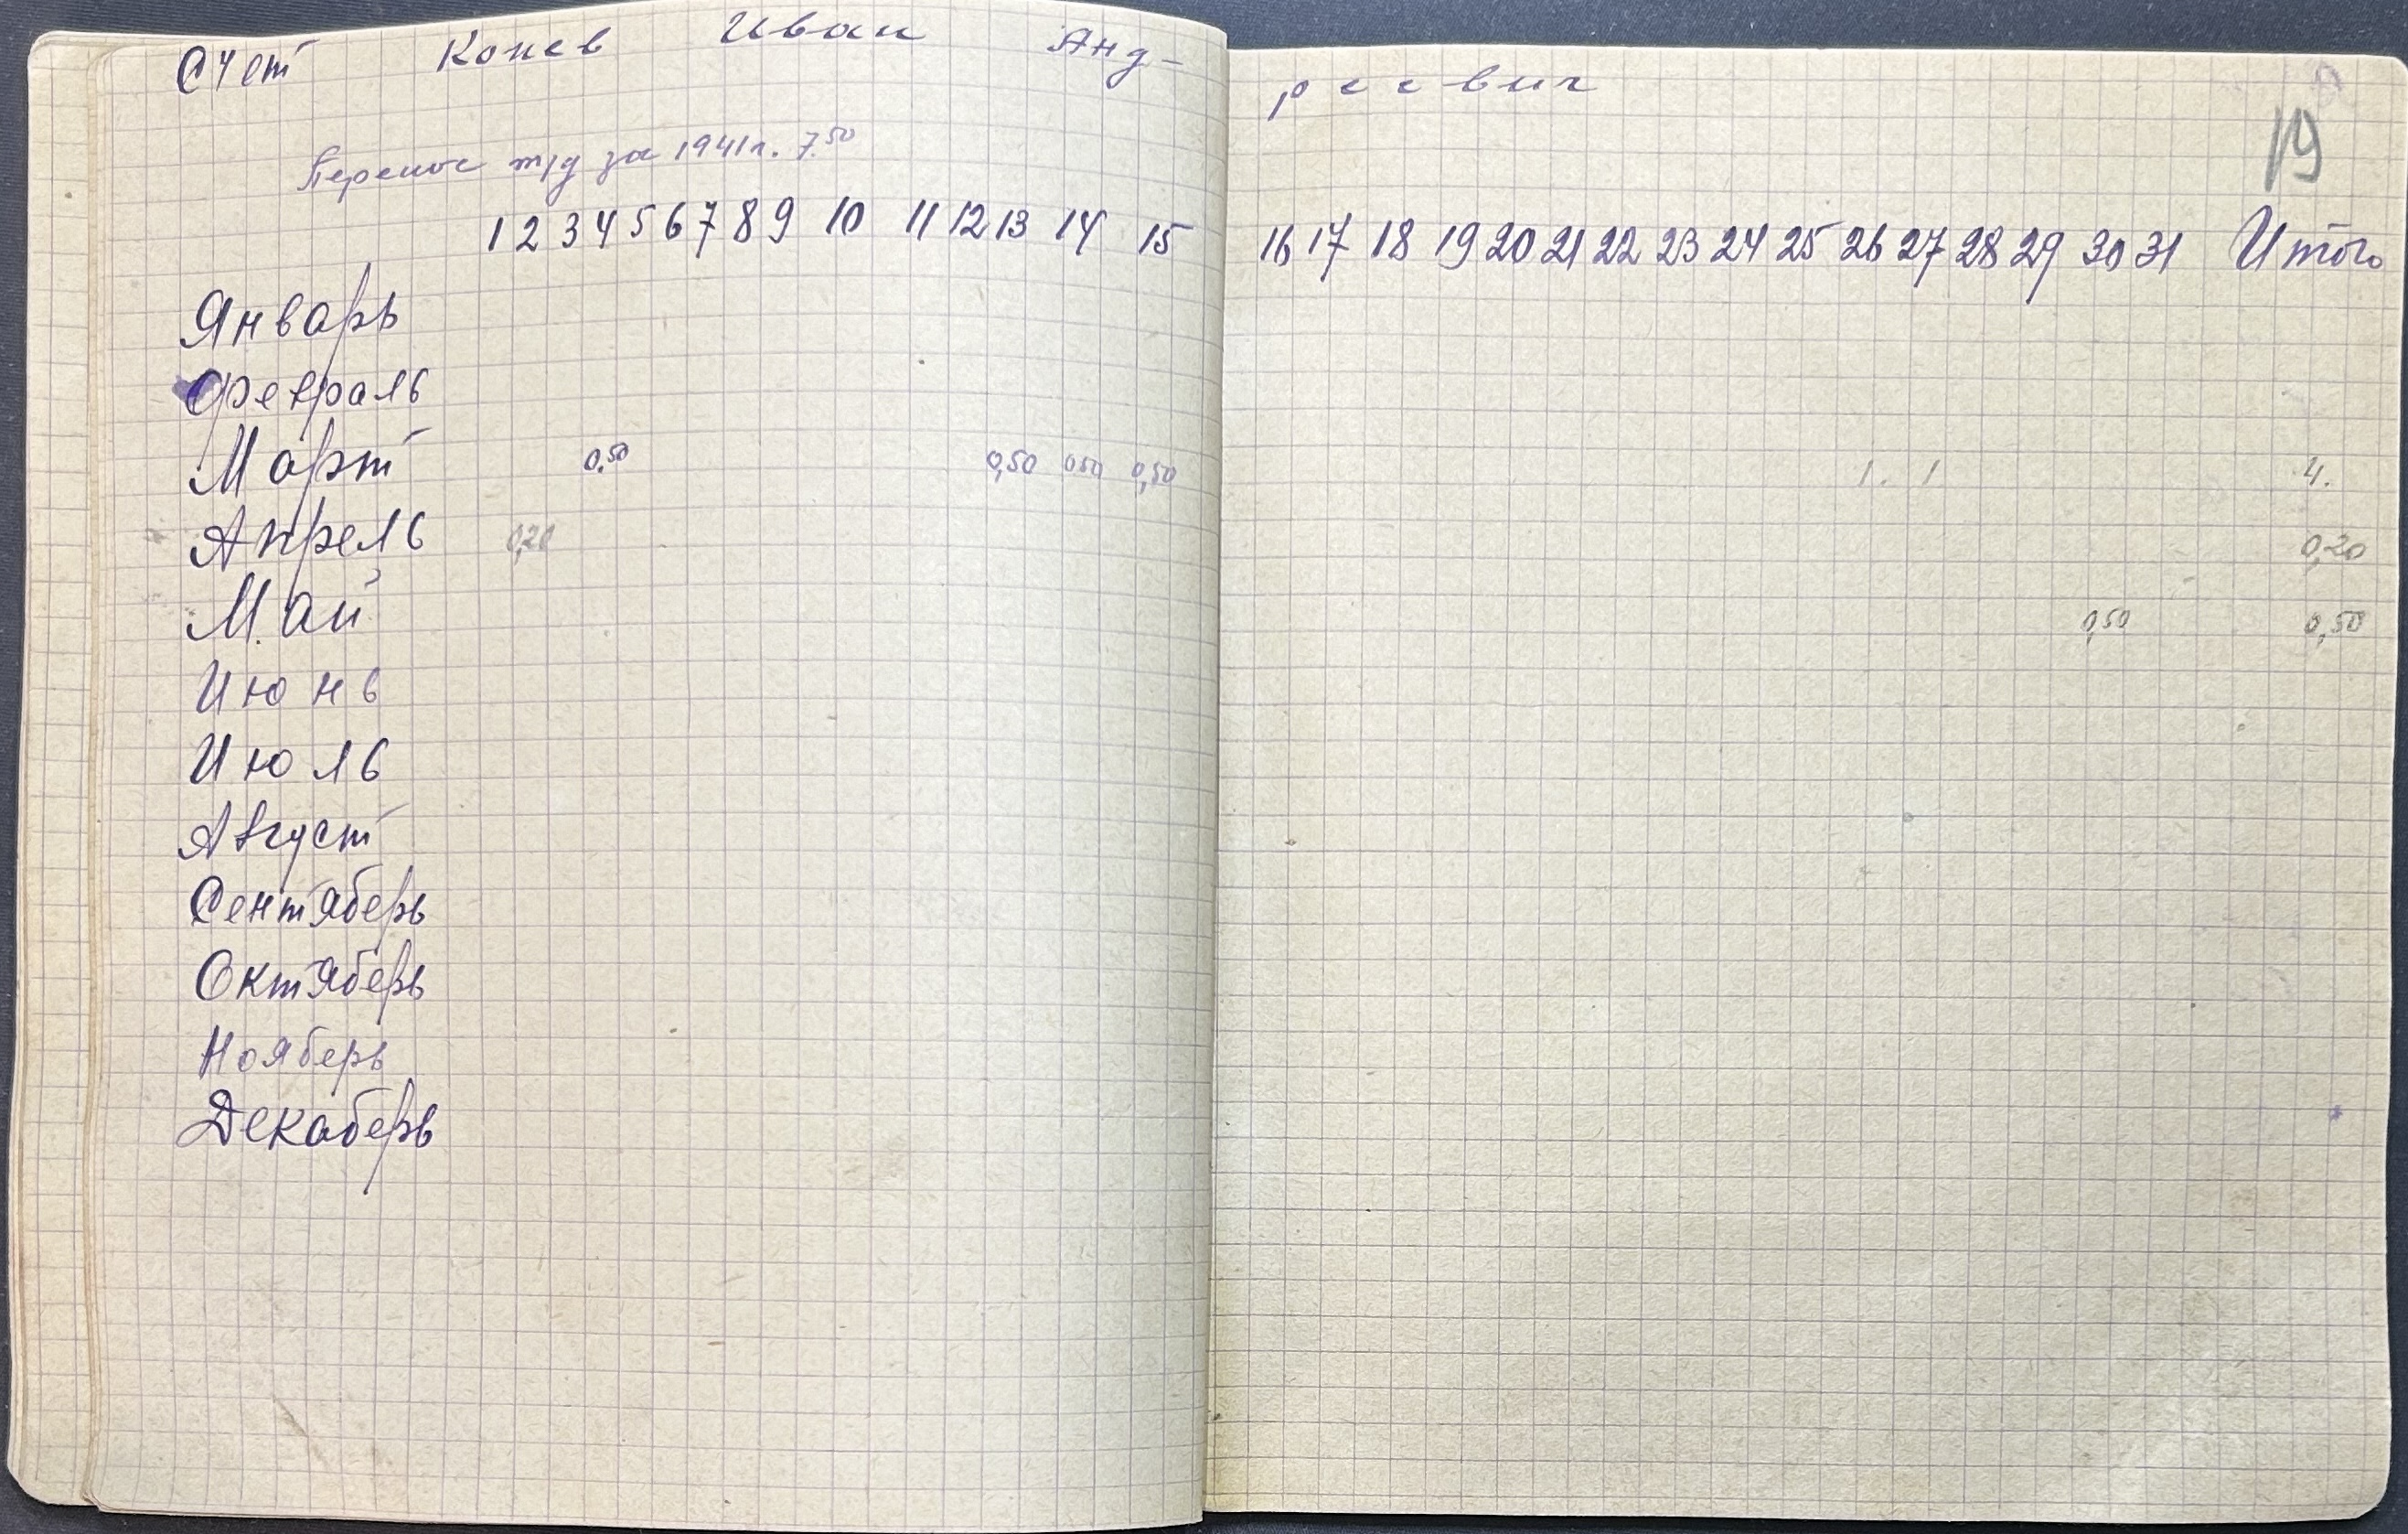 Счет Конев Иван Анд-реевич
19
Перенос т/д за 1941 г. 7.50
1 2 3 4 5 6 7 8 9 10 11 12 13 14 15 16 17 18 19 20 21 22 23 24 25 26 27 28 29 30 31 Итого
Январь
Февраль
Март 0.50 0,50 0,50 0,50 1. 1 4.
Апрель 0,20 0,20
Май 0,50 0,50
Июнь
Июль
Август
Сентяберь
Октяберь
Нояберь
Декаберь